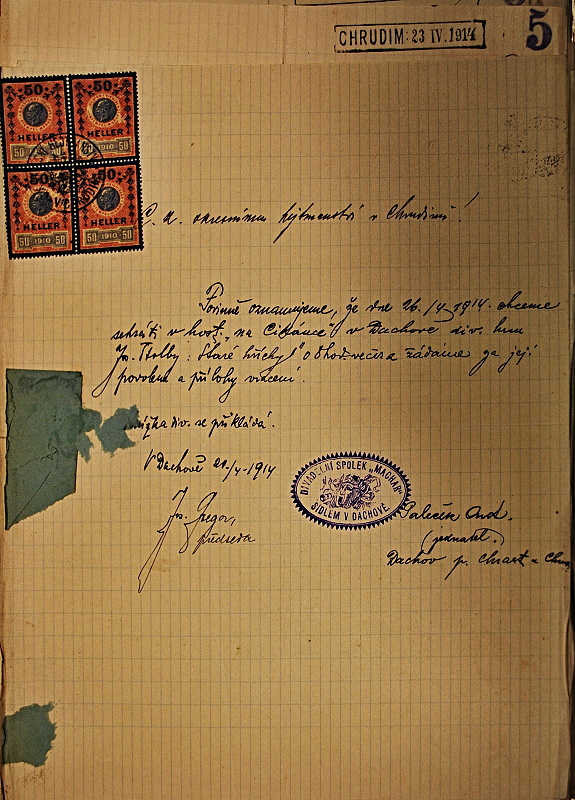 CHRUDIM: 23 IV. 1914
5
50 50
HELLER HELLER
50 1910 50 50 1910 50
50 50
HELLER HELLER
50 1910 50 50 1910 50
C. k. okresnímu hejtmanství v Chrudimi!
Povinně oznamujeme, že dne 26./4 1914 chceme
sehráti v host. „na Cikánce" v Dachově div. hru
Jos. Štolby: „Staré hříchy" o 8 hod. večer a žádáme za její
povolení a přílohy vrácení.
knížka div. se přikládá.
V Dachově 20./4 - 1914
DIVADELNÍ SPOLEK „MACHAR"
SÍDLEM V DACHOVĚ
Jos. Gregor,
předseda
Paleček Ond.
(jednatel.)
Dachov p. Chrast u Chru